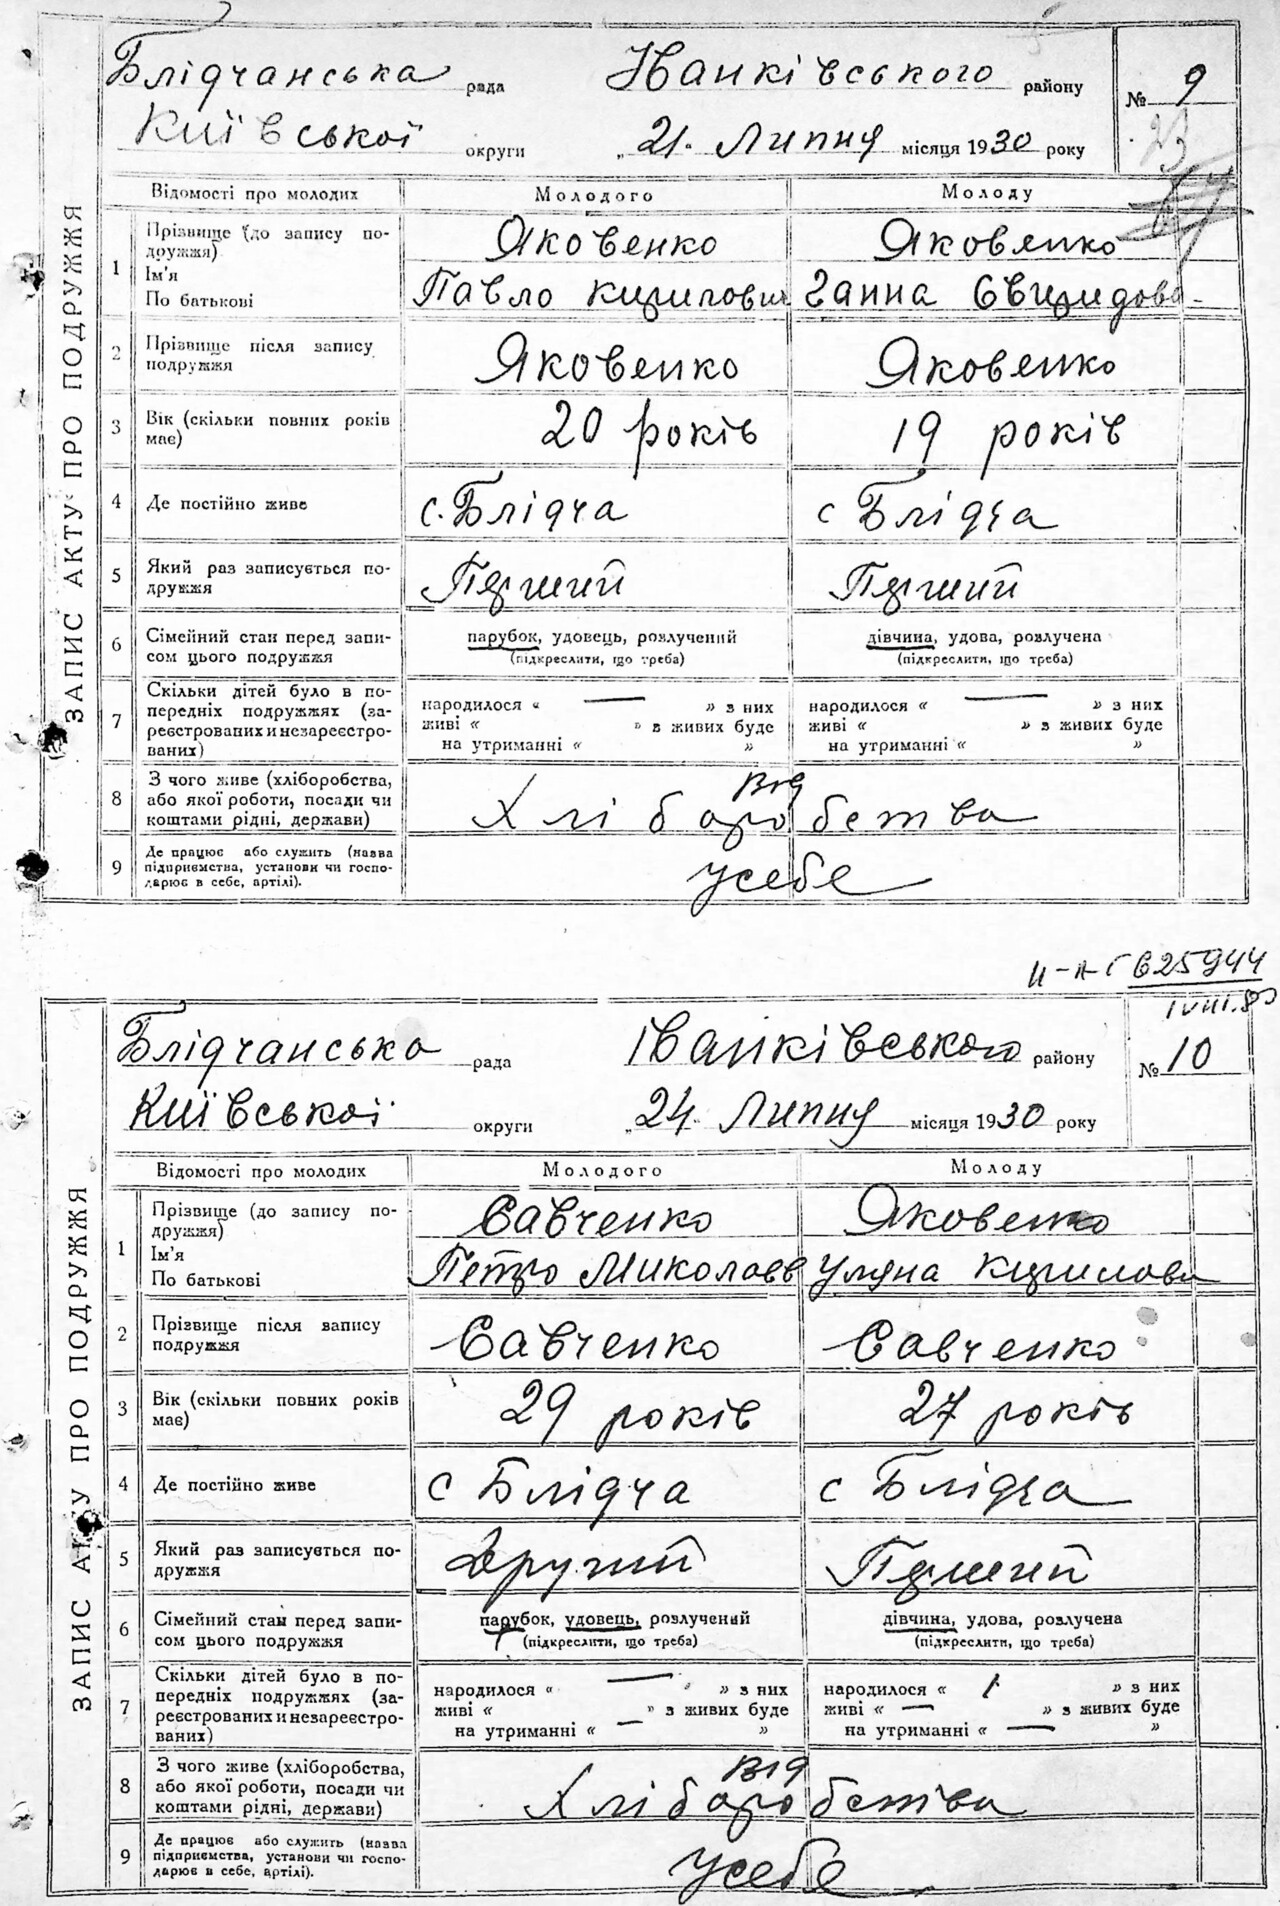 ЗАПИС АКТУ ПРО ПОДРУЖЖЯ
Блідчанська рада Іванківського району № 9
Київської округи „21" Липня місяця 1930 року
23
Відомості про молодих Молодого Молоду
1 Прізвище (до запису по-
дружжя)
Ім'я
По батькові
Яковенко Яковенко
Павло Кирилович Ганна Свиридова
2 Прізвище після запису
подружжя
Яковенко Яковенко
3 Вік (скільки повних років
має)
20 років 19 років
4 Де постійно живе с. Блідча с Блідча
5 Який раз записується по-
дружжя
Перший Перший
6 Сімейний стан перед запи-
сом цього подружжя
парубок, удовець, розлучений дівчина, удова, розлучена
(підкреслити, що треба) (підкреслити, що треба)
7 Скільки дітей було в по-
передніх подружжях (за-
реєстрованих и незареєстро-
ваних)
народилося « — » з них народилося « — » з них
живі « » з живих буде живі « » з живих буде
на утриманні « » на утриманні « »
8 З чого живе (хліборобства,
або якої роботи, посади чи
коштами рідні, держави)
Від
Хліборобства
9 Де працює або служить (назва
підприємства, установи чи госпо-
дарює в себе, артілі).
усебе
625944
ЗАПИС АКТУ ПРО ПОДРУЖЖЯ
Блідчанська рада Іванківського району № 10
Київської округи „24" Липня місяця 1930 року
Відомості про молодих Молодого Молоду
1 Прізвище (до запису по-
дружжя)
Ім'я
По батькові
Савченко Яковенко
Петро Миколаєв Уляна Кирилова
2 Прізвище після запису
подружжя
Савченко Савченко
3 Вік (скільки повних років
має)
29 років 27 років
4 Де постійно живе с Блідча с Блідча
5 Який раз записується по-
дружжя
Другий Перший
6 Сімейний стан перед запи-
сом цього подружжя
парубок, удовець, розлучений дівчина, удова, розлучена
(підкреслити, що треба) (підкреслити, що треба)
7 Скільки дітей було в по-
передніх подружжях (за-
реєстрованих и незареєстро-
ваних)
народилося « — » з них народилося « 1 » з них
живі « » з живих буде живі « — » з живих буде
на утриманні « — » на утриманні « — »
8 З чого живе (хліборобства,
або якої роботи, посади чи
коштами рідні, держави)
Від
Хліборобства
9 Де працює або служить (назва
підприємства, установи чи госпо-
дарює в себе, артілі).
усебе